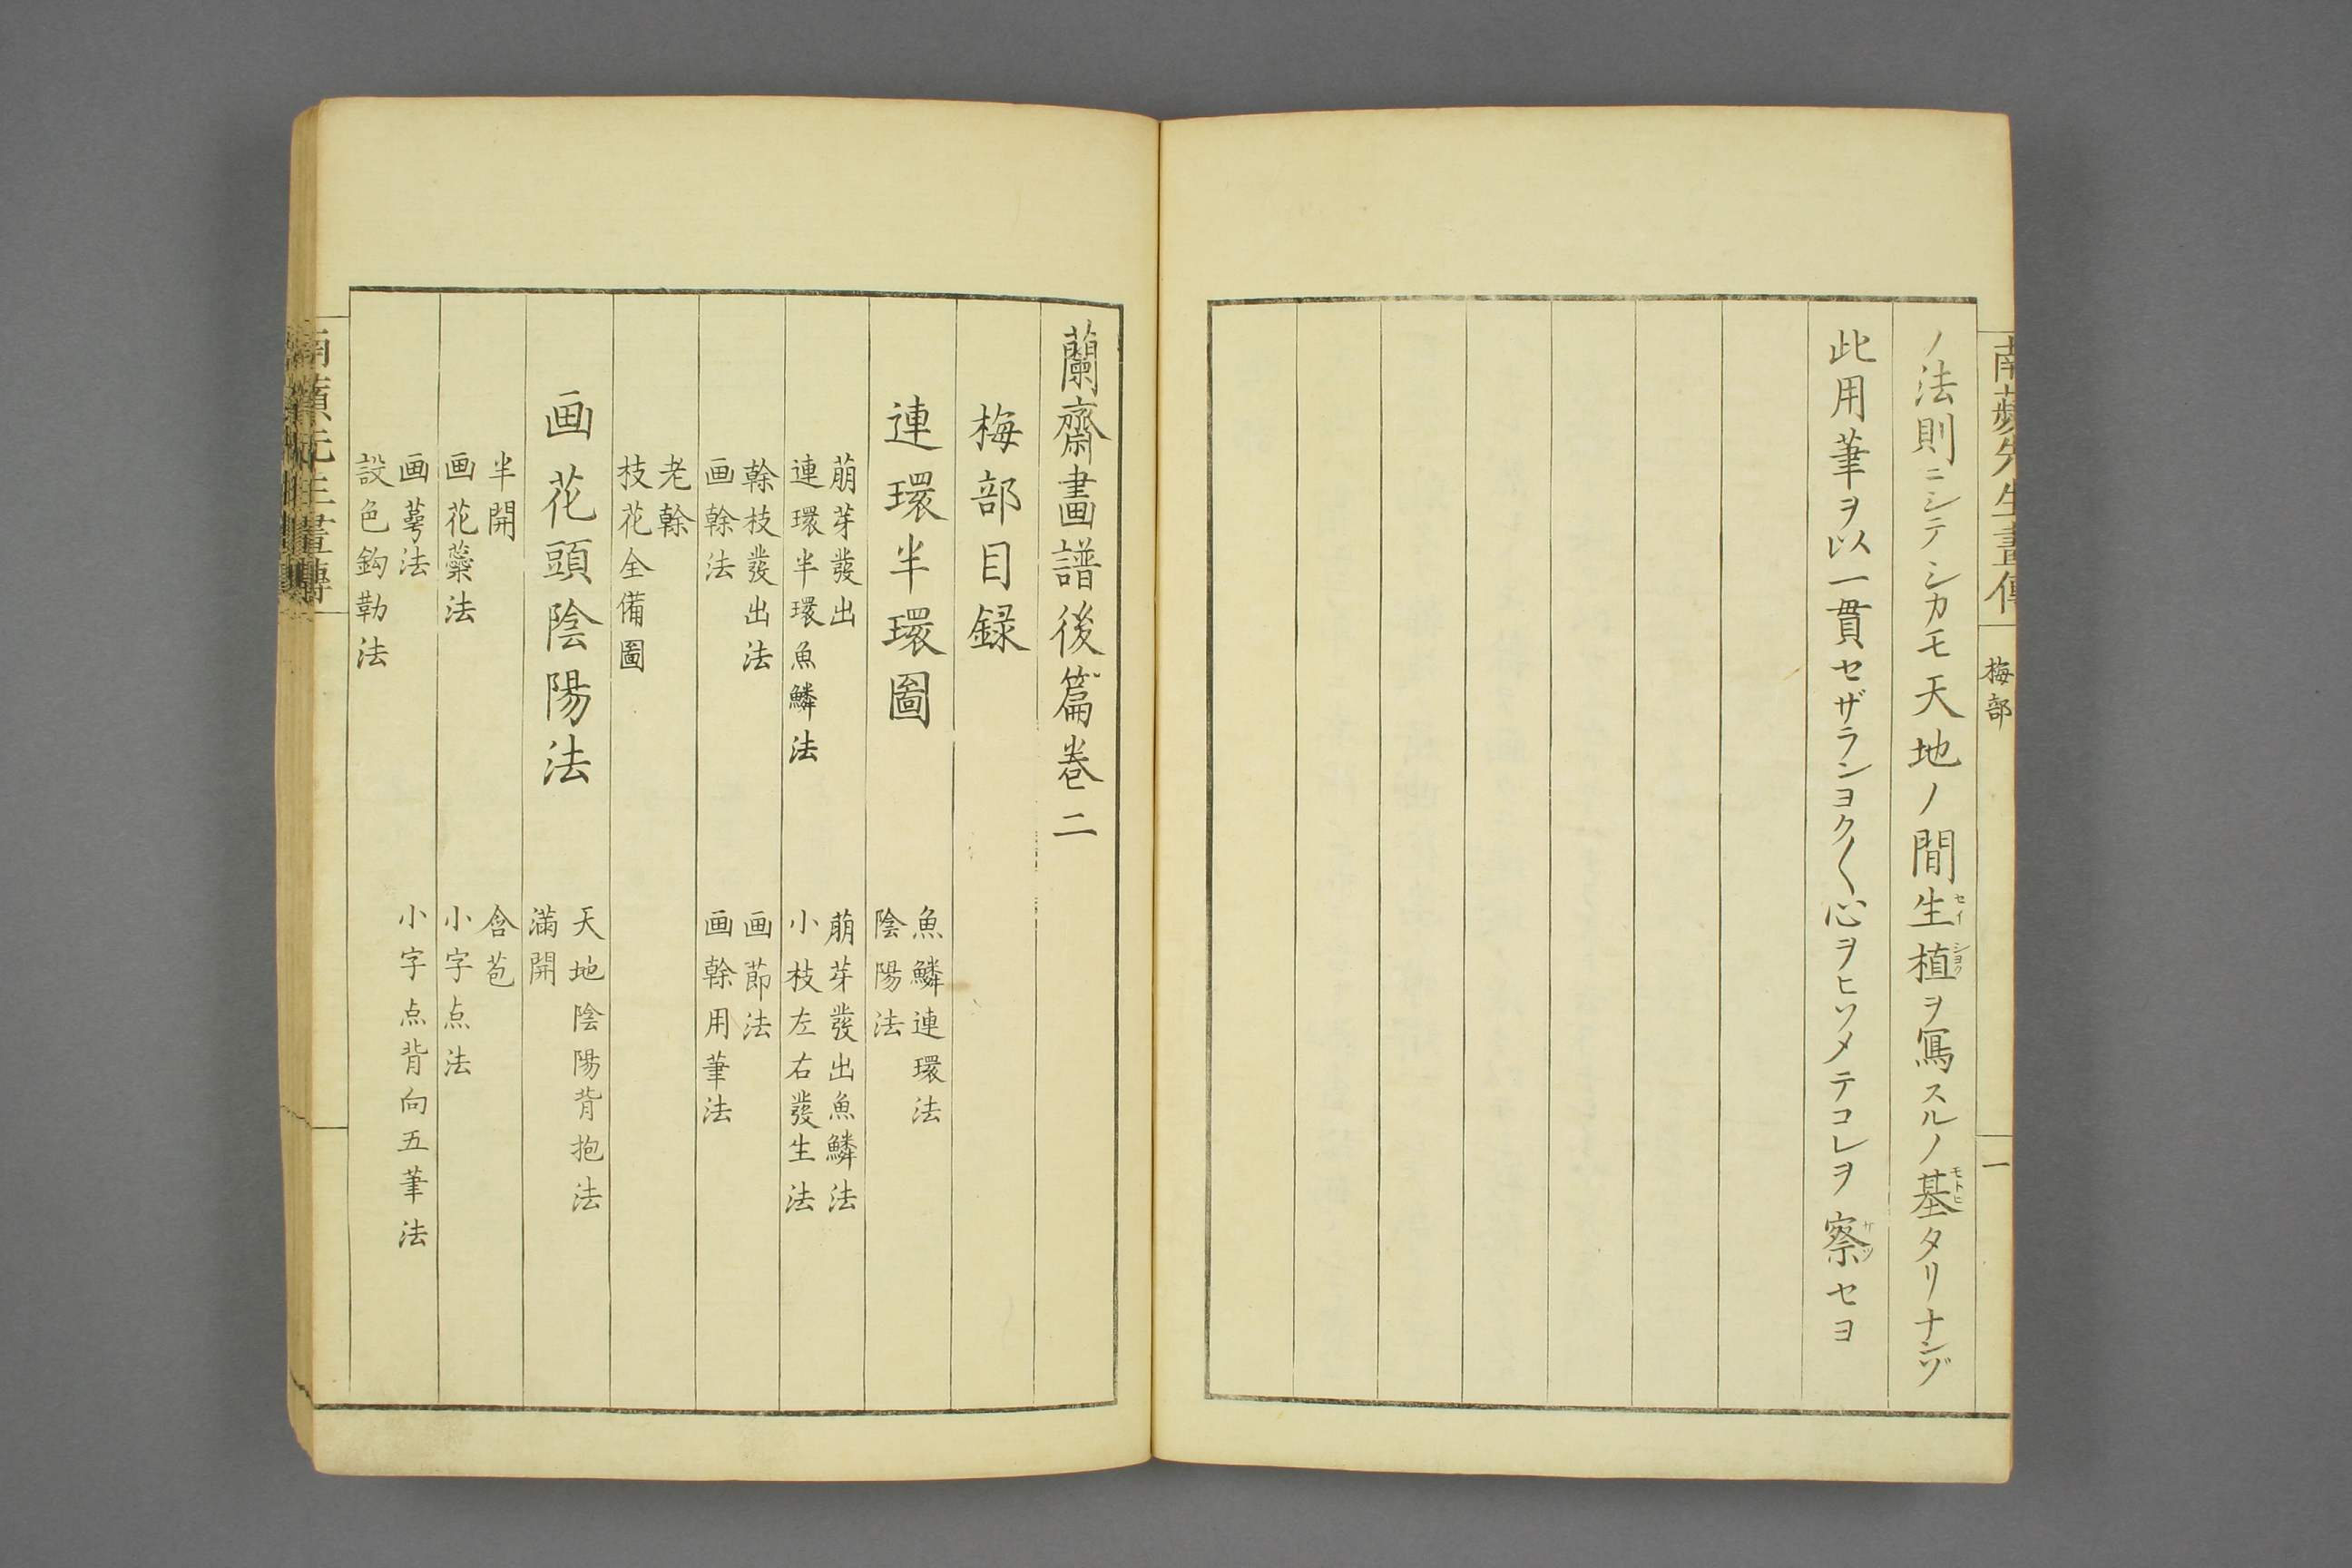 南蘋先生畫傳
梅部
一
ノ法則ニシテシカモ天地ノ間生植ヲ寫スルノ基タリナンゾ
セイ
シヨク
モトヒ
此用筆ヲ以一貫セザランヨク〱心ヲヒソメテコレヲ察セヨ
サツ
蘭齋畫譜後篇卷二
梅部目録
連環半環圖
魚鱗連環法
陰陽法
萠芽發出
連環半環魚鱗法
萠芽發出魚鱗法
小枝左右發生法
幹枝發出法
画幹法
画莭法
画幹用筆法
老幹
枝花全備圖
画花頭陰陽法
天地陰陽背抱法
滿開
半開
画花蘂法
含苞
小字点法
画萼法
設色鈎勒法
小字点背向五筆法
南蘋先生畫傳